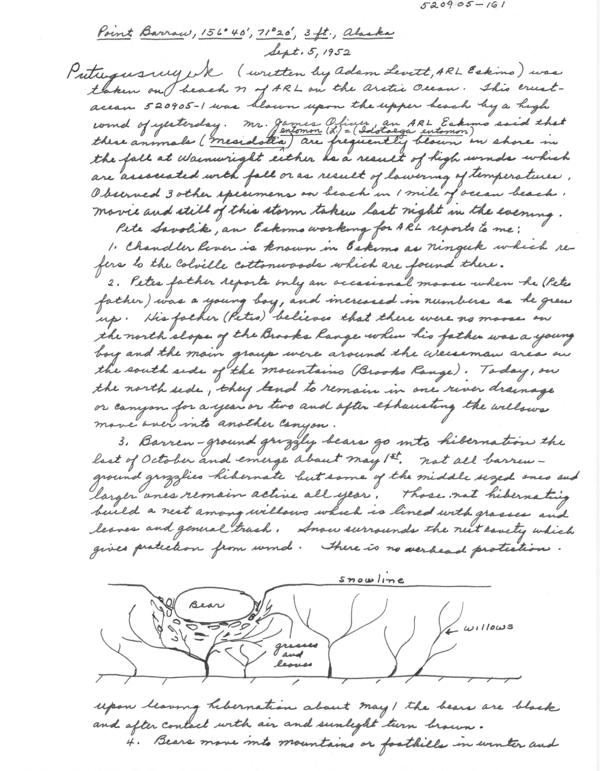 520905-161
Point Barrow, 156°40', 71°20', 3 ft., Alaska
Sept. 5, 1952
(written by Adam Levett, ARL Eskimo) was
taken on beach N of ARL on the Arctic Ocean. This crust-
acean 520905-1 was blown upon the upper beach by a high
wind of yesterday. Mr. James Oliver, an ARL Eskimo said that
entomon (L) = (Idotaega entomon)
these animals (Mesidotea) are frequently blown on shore in
the fall at Wainwright either as a result of high winds which
are associated with fall or as result of lowering of temperatures.
Observed 3 other specimens on beach in 1 mile of ocean beach.
Movie and still of this storm taken last night in the evening.
Pete Savolik, an Eskimo working for ARL reports to me:
1. Chandler River is known in Eskimo as Ninguk which re-
fers to the Colville Cottonwoods which are found there.
2. Petes father reports only an occasional moose when he (Petes
father) was a young boy, and increased in numbers as he grew
up. His father (Petes) believes that there were no moose on
the north slope of the Brooks Range when his father was a young
boy and the main group were around the Weiseman area on
the south side of the mountains (Brooks Range). Today, on
the north side, they tend to remain in one river drainage
or canyon for a year or two and after exhausting the willows
move over into another canyon.
3. Barren-ground grizzly bears go into hibernation the
last of October and emerge about May 1st. Not all barren-
ground grizzlies hibernate but some of the middle sized ones and
larger ones remain active all year. Those not hibernating
build a nest among willows which is lined with grasses and
leaves and general trash. Snow surrounds the nest cavity which
gives protection from wind. There is no overhead protection.
snowline
Bear
willows
grasses
and
leaves
upon leaving hibernation about May 1 the bears are black
and after contact with air and sunlight turn brown.
4. Bears move into mountains or foothills in winter and